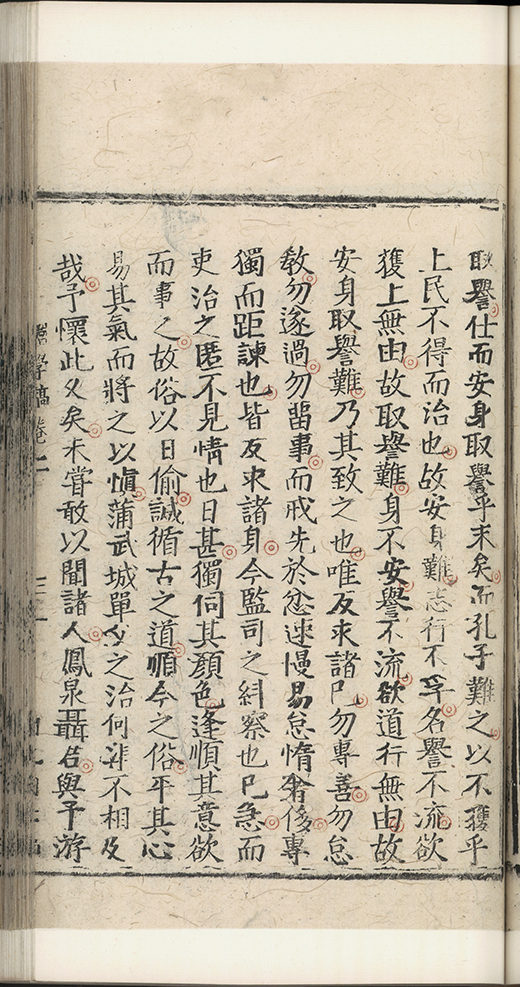 取譽仕而安身取譽乎末矣而孔子難之以不獲乎
上民不得而治也故安身難志行不孚名譽不流欲
獲上無由故取譽難身不安譽不流欲道行無由故
安身取譽難乃其致之也唯反求諸己勿專善勿怠
教勿遂過勿畱事而戒先於忿速慢易怠惰奢侈專
獨而距諫也皆反求諸身今監司之糾察也已急而
吏治之匿不見情也日甚獨伺其顏色逢順其意欲
而事之故俗以日偷誠循古之道順今之俗平其心
易其氣而將之以慎蒲武城單父之治何渠不相及
哉予懷此久矣未嘗敢以聞諸人鳳泉聶君與予游
學稿卷之一